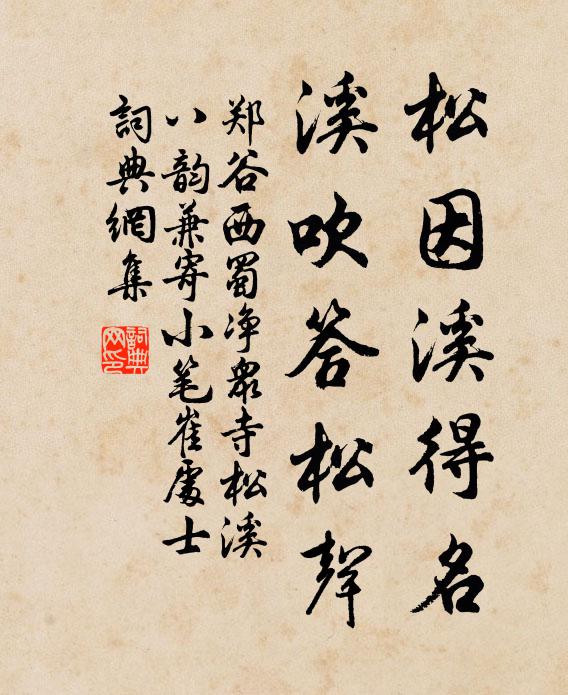 松因溪得名
溪吹答松聲
郑谷西蜀净衆寺松溪
八韵兼寄小笔崔處士
詞典網集
詞典网印